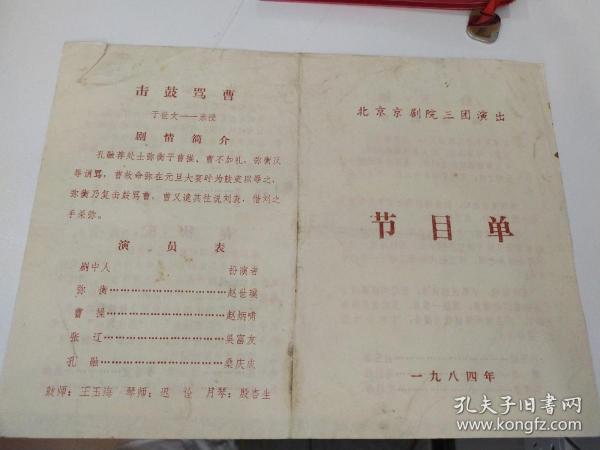 击鼓骂曹
于世文——亲授
剧情简介
孔融荐处士弥衡于曹操，曹不加礼，弥衡汉
辱讽骂，曹故命弥在元旦大宴时为鼓吏以辱之，
弥衡乃复击鼓骂曹，曹又遣其往说刘表，借刘之
手来弥。
演员表
剧中人 扮演者
弥衡……………………赵世璞
曹操……………………赵炳啸
张辽……………………吴富友
孔融……………………桑庆成
鼓师：王玉海 琴师：迟 月琴：殷杏生
北京京剧院三团演出
节目单
一九八四年
孔夫子旧书网
www.kongfz.com